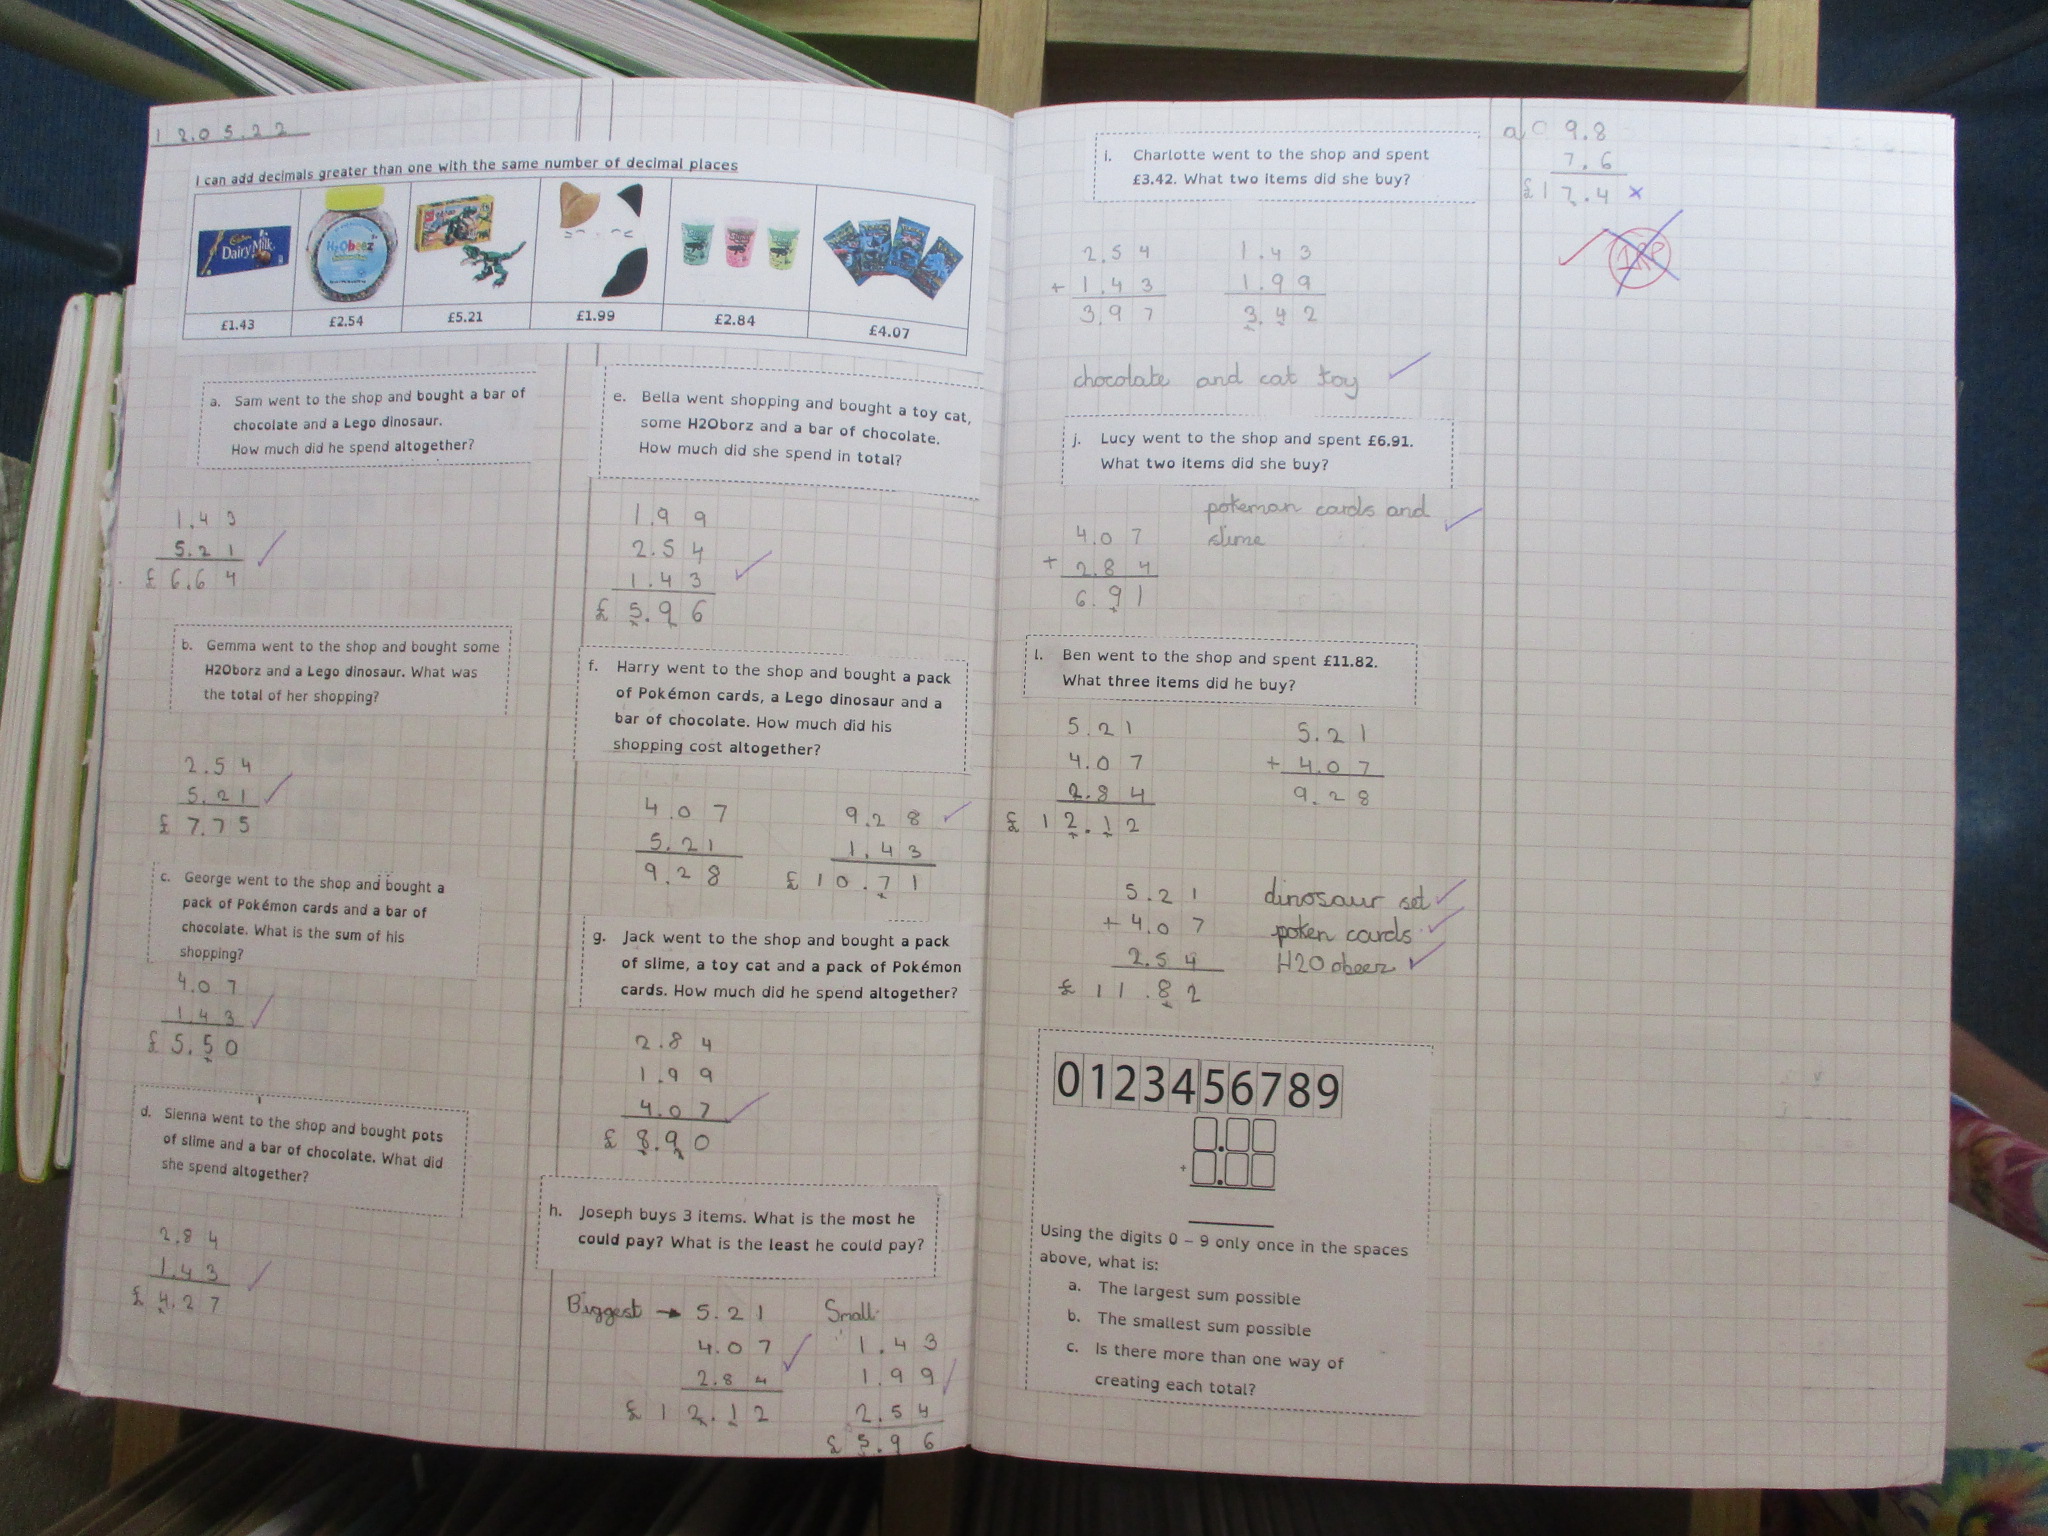 12.05.22
I can add decimals greater than one with the same number of decimal places
Cadbury
Dairy Milk
H2Obeez
£1.43 £2.54 £5.21 £1.99 £2.84 £4.07
a. Sam went to the shop and bought a bar of
chocolate and a Lego dinosaur.
How much did he spend altogether?
1.43
5.21
£6.64
b. Gemma went to the shop and bought some
H2Oborz and a Lego dinosaur. What was
the total of her shopping?
2.54
5.21
£7.75
c. George went to the shop and bought a
pack of Pokémon cards and a bar of
chocolate. What is the sum of his
shopping?
4.07
1.43
£5.50
d. Sienna went to the shop and bought pots
of slime and a bar of chocolate. What did
she spend altogether?
2.84
1.43
£4.27
e. Bella went shopping and bought a toy cat,
some H2Oborz and a bar of chocolate.
How much did she spend in total?
1.99
2.54
1.43
£5.96
f. Harry went to the shop and bought a pack
of Pokémon cards, a Lego dinosaur and a
bar of chocolate. How much did his
shopping cost altogether?
4.07
5.21
9.28
9.28
1.43
£10.71
g. Jack went to the shop and bought a pack
of slime, a toy cat and a pack of Pokémon
cards. How much did he spend altogether?
2.84
1.99
4.07
£8.90
h. Joseph buys 3 items. What is the most he
could pay? What is the least he could pay?
Biggest → 5.21
4.07
2.84
£12.12
Small
1.43
1.99
2.54
£5.96
i. Charlotte went to the shop and spent
£3.42. What two items did she buy?
2.54
+ 1.43
3.97
1.43
1.99
3.42
chocolate and cat toy
j. Lucy went to the shop and spent £6.91.
What two items did she buy?
pokeman cards and
slime
4.07
+ 2.84
6.91
l. Ben went to the shop and spent £11.82.
What three items did he buy?
5.21
4.07
2.84
£12.12
5.21
+ 4.07
9.28
5.21
+ 4.07
2.54
£11.82
dinosaur set
poken cards
H2Oobeez
0123456789
+
Using the digits 0 – 9 only once in the spaces
above, what is:
a. The largest sum possible
b. The smallest sum possible
c. Is there more than one way of
creating each total?
a 9.8
7.6
£17.4 x